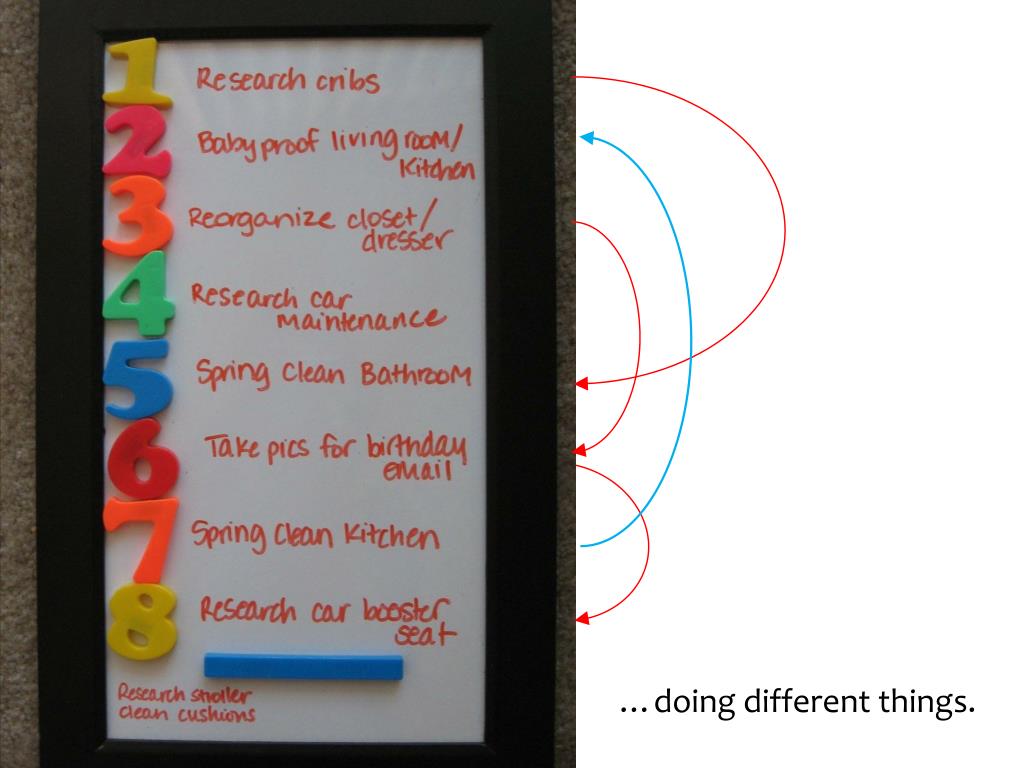 1 Research cribs
2 Babyproof living room/
Kitchen
3 Reorganize closet/
dresser
4 Research car
maintenance
5 Spring Clean Bathroom
6 Take pics for birthday
email
7 Spring Clean Kitchen
8 Research car booster
seat
Research stroller
clean cushions
...doing different things.